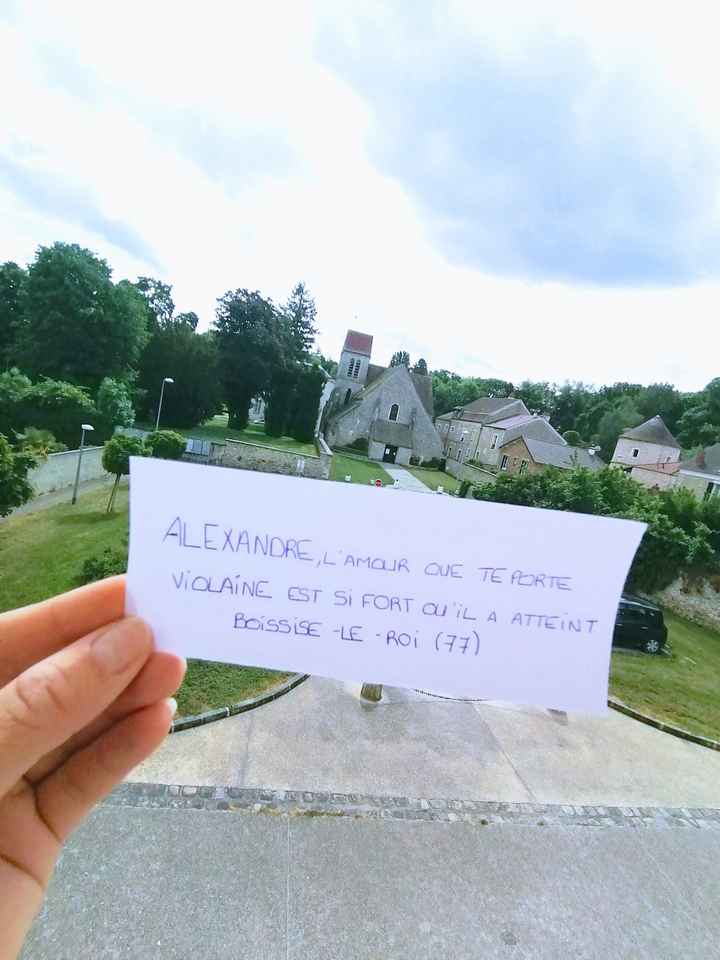 ALEXANDRE, L'AMOUR QUE TE PORTE
VIOLAINE EST SI FORT QU'IL A ATTEINT
BOISSISE-LE-ROI (77)